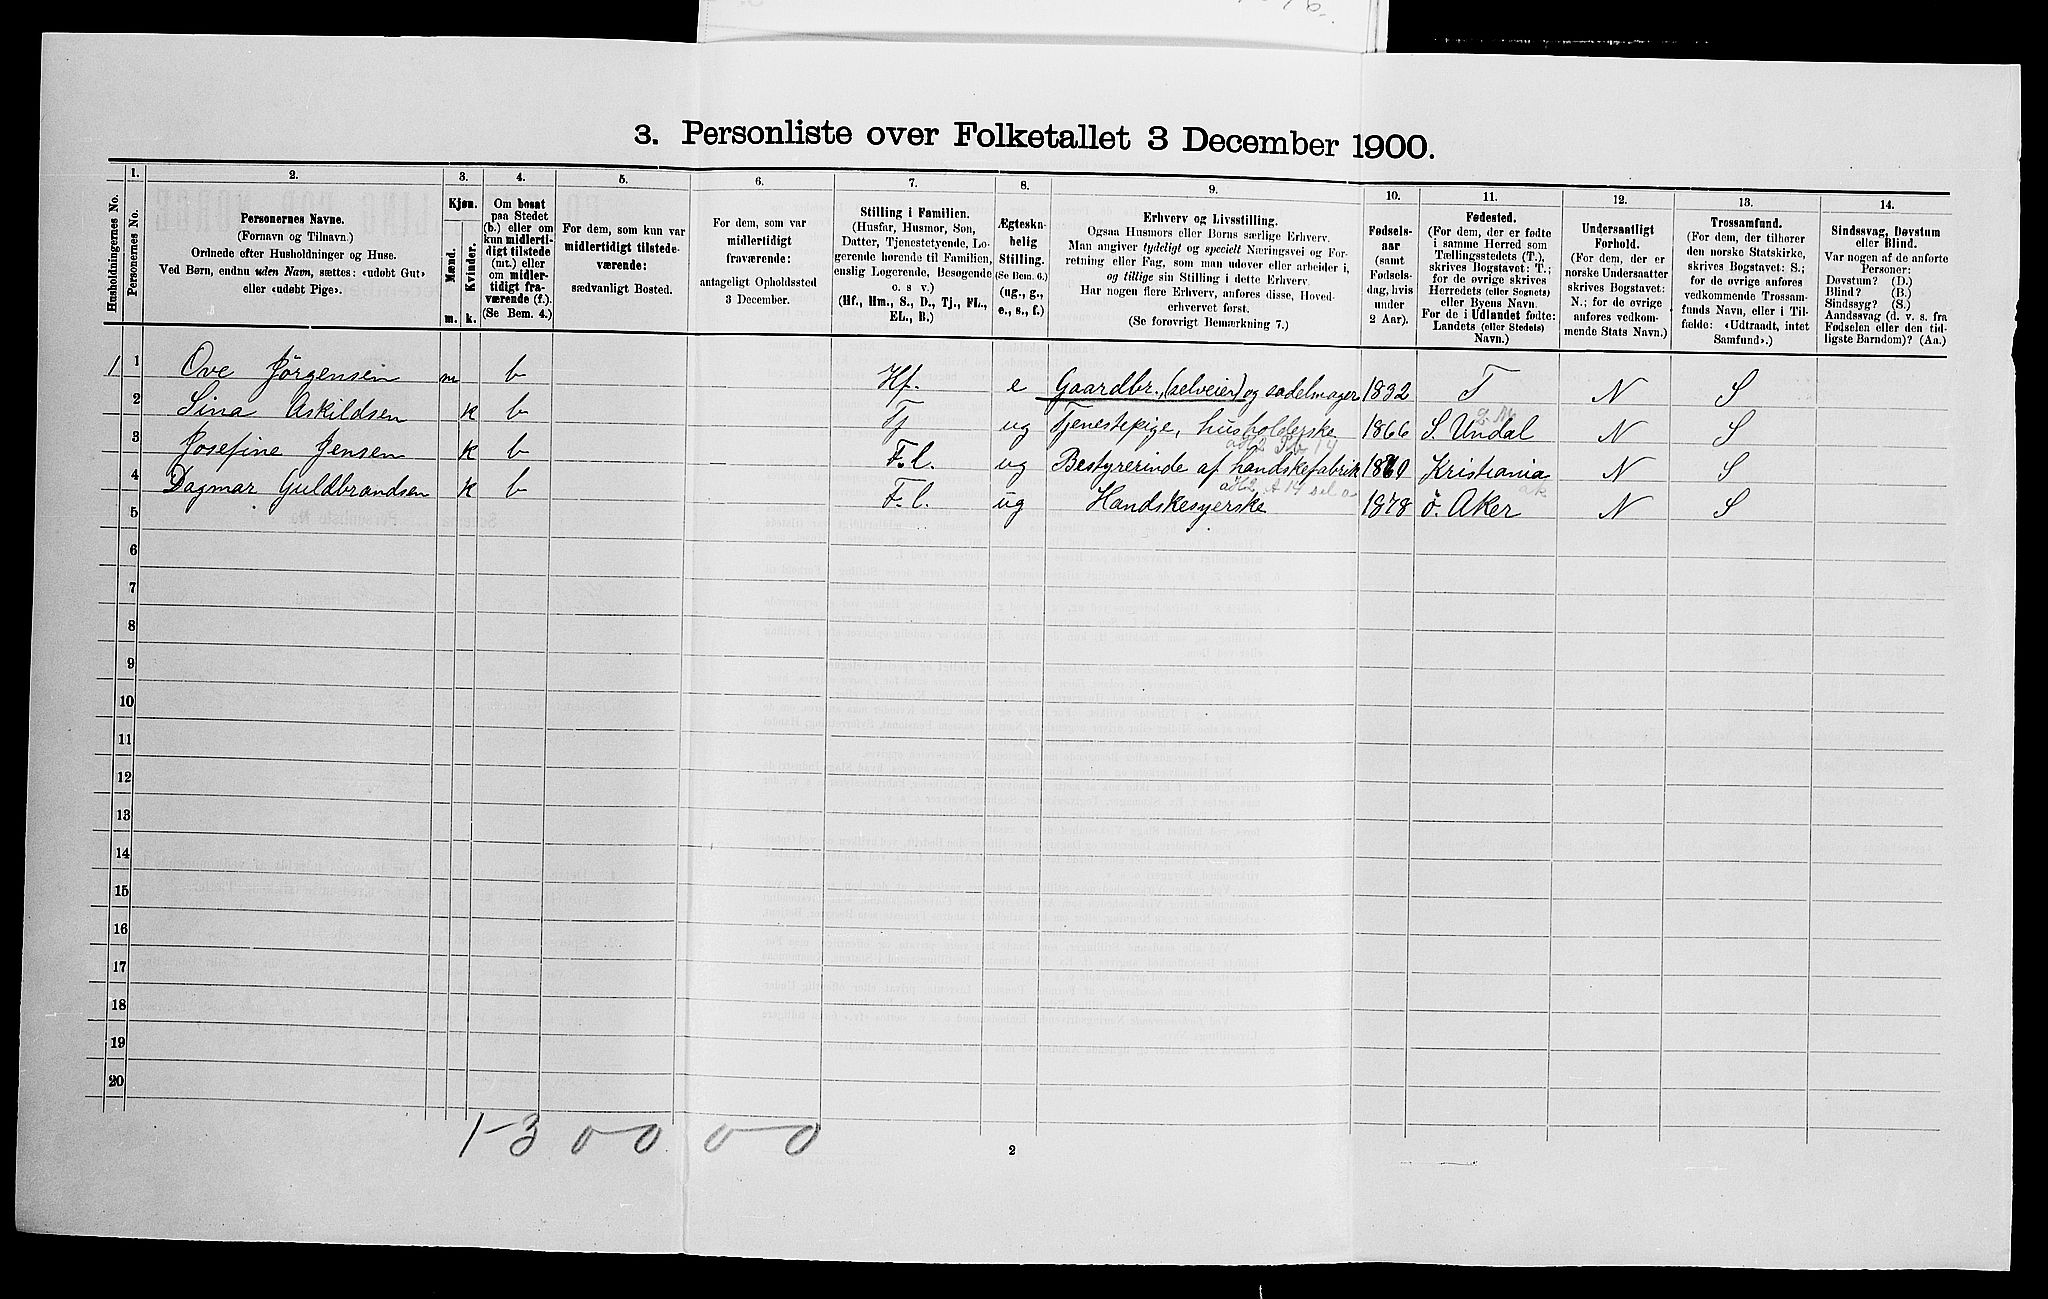 3. Personliste over Folketallet 3 December 1900.
Husholdningernes No.
1.
Personernes No.
2.
Personernes Navne.
(Fornavn og Tilnavn.)
Ordnede efter Husholdninger og Huse.
Ved Børn, endnu uden Navn, sættes: «udøbt Gut»
eller «udøbt Pige».
3.
Kjøn.
Mænd.
Kvinder.
m. k.
4.
Om bosat
paa Stedet
(b.) eller om
kun midlerti-
digt tilstede
(mt.) eller
om midler-
tidigt fra-
værende (f.).
(Se Bem. 4.)
5.
For dem, som kun var
midlertidigt tilstede-
værende:
sædvanligt Bosted.
6.
For dem, som var
midlertidigt
fraværende:
antageligt Opholdssted
3 December.
7.
Stilling i Familien.
(Husfar, Husmor, Søn,
Datter, Tjenestetyende, Lo-
gerende hørende til Familien,
enslig Logerende, Besøgende
o. s v.)
(Hf., Hm., S., D., Tj., FL.,
EL., B.)
8.
Ægteskabelig
Stilling.
(Se Bem. 6.)
(ug., g.,
e., s., f.)
9.
Erhverv og Livsstilling.
Ogsaa Husmors eller Børns særlige Erhverv.
Man angiver tydeligt og specielt Næringsvei og For-
retning eller Fag, som man udøver eller arbeider i,
og tillige sin Stilling i dette Erhverv.
Har nogen flere Erhverv, anføres disse, Hoved-
erhvervet først.
(Se forøvrigt Bemærkning 7.)
10.
Fødsels-
aar
(samt
Fødsels-
dag, hvis
under
2 Aar).
11.
Fødested.
(For dem, der er fødte
i samme Herred som
Tællingsstedets (T.),
skrives Bogstavet: T.;
for de øvrige skrives
Herredets (eller Sognets)
eller Byens Navn.
For de i Udlandet fødte:
Landets (eller Stedets)
Navn.)
12.
Undersaatligt
Forhold.
(For dem, der er
norske Undersaatter
skrives Bogstavet:
N.; for de øvrige
anføres vedkom-
mende Stats Navn.)
13.
Trossamfund.
(For dem, der tilhører
den norske Statskirke,
skrives Bogstavet: S.;
for de øvrige anføres
vedkommende Trossam-
funds Navn, eller i Til-
fælde: «Udtraadt, intet
Samfund».)
14.
Sindssvag, Døvstum
eller Blind.
Var nogen af de anførte
Personer:
Døvstum? (D.)
Blind? (B.)
Sindssyg? (S.)
Aandssvag (d. v. s. fra
Fødselen eller den tid-
ligste Barndom)? (Aa.)
1 1 Ove Jörgensen m b Hf. e Gaardbr., (selveier) og sadelmager 1832 T N S
2 Sina Askildsen k b Tj ug Tjenestepige, husholderske 1866 S. Undal N S
3 Josefine Jensen k b F.l. ug Bestyrerinde af handskefabrik 1860 Kristiania N S
4 Dagmar Guldbrandsen k b F.l. ug Handskesyerske 1878 ö. Aker N S
5
6
7
8
9
10
11
12
13
14
15
16
17
18
19
20
1-3 0 0 0 0
2